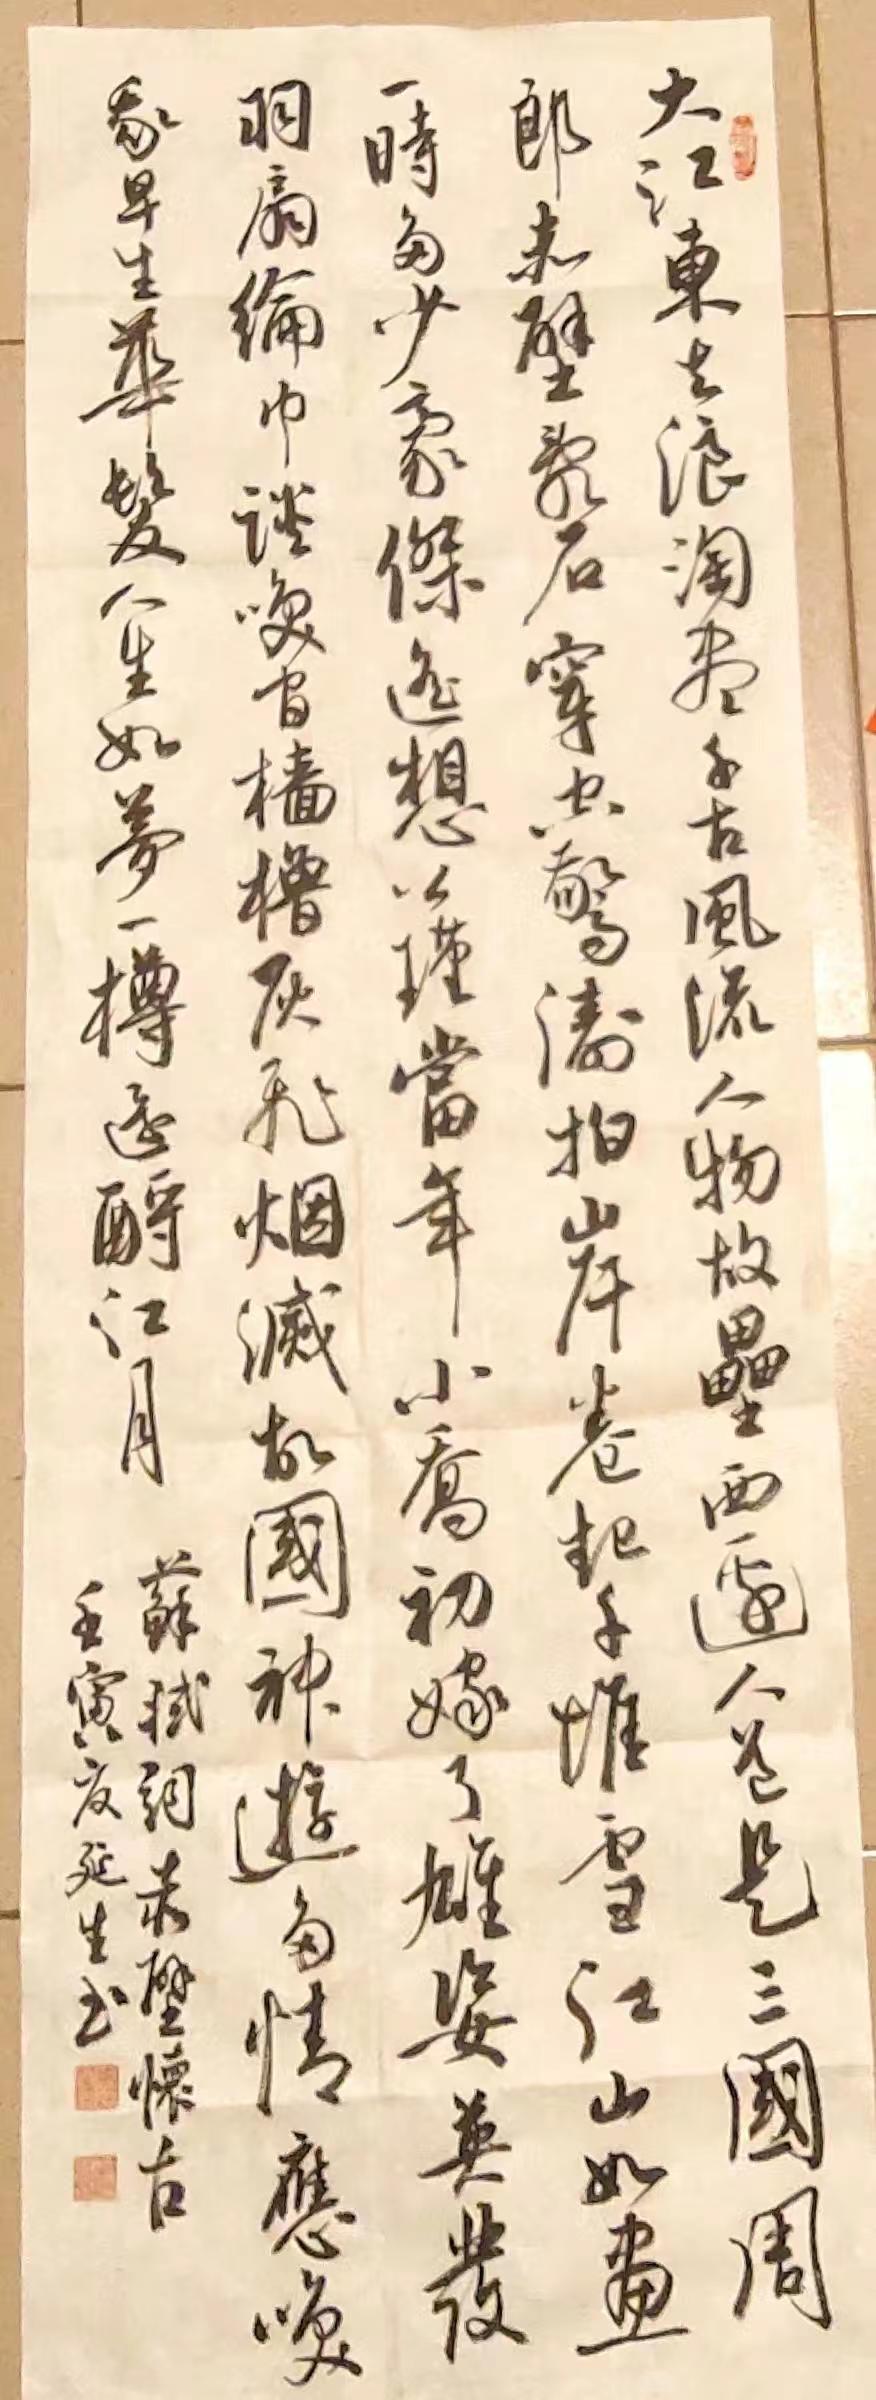 大江東去浪淘盡千古風流人物故壘西邊人道是三國周
郎赤壁亂石穿空驚濤拍岸卷起千堆雪江山如畫
一時多少豪傑遙想公瑾當年小喬初嫁了雄姿英發
羽扇綸巾談喚間檣櫓灰飛烟滅故國神遊多情應喚
我早生華髮人生如夢一樽還酹江月
蘇軾詞赤壁懷古
壬寅夏延生书